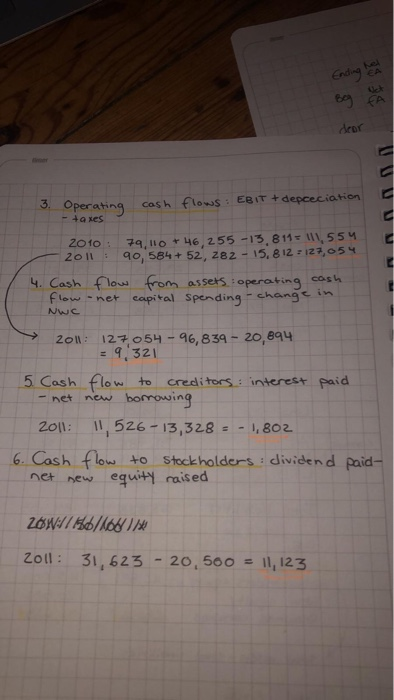 Ending Net FA
Beg Net FA
depr
3. Operating cash flows: EBIT + depreciation
- taxes
2010: 79,110 + 46,255 - 13,811 = 111,554
2011: 90,584 + 52,282 - 15,812 = 127,054
4. Cash flow from assets: operating cash
flow - net capital spending - change in
NWC
2011: 127,054 - 96,839 - 20,894
= 9,321
5. Cash flow to creditors: interest paid
- net new borrowing
2011: 11,526 - 13,328 = - 1,802
6. Cash flow to stockholders: dividend paid -
net new equity raised
2011: 31,623 - 20,500 = 11,123